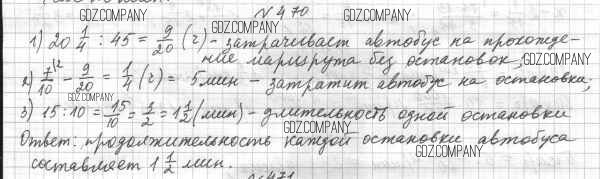 № 470
GDZ.COMPANY GDZ.COMPANY GDZ.COMPANY
1) 20 1/4 : 45 = 9/20 (г) - затрачивает автобус на прохожде-
ние маршрута без остановок; GDZ.COMPANY
2) 7/10 |2 - 9/20 = 1/4 (г) = 5мин - затратит автобус на остановка;
GDZ.COMPANY
3) 15 : 10 = 15/10 = 3/2 = 1 1/2 (мин) - длительность одной остановки
GDZ.COMPANY
Ответ: продолжительность каждой остановки автобуса
составляет 1 1/2 мин. GDZ.COMPANY
№ 471